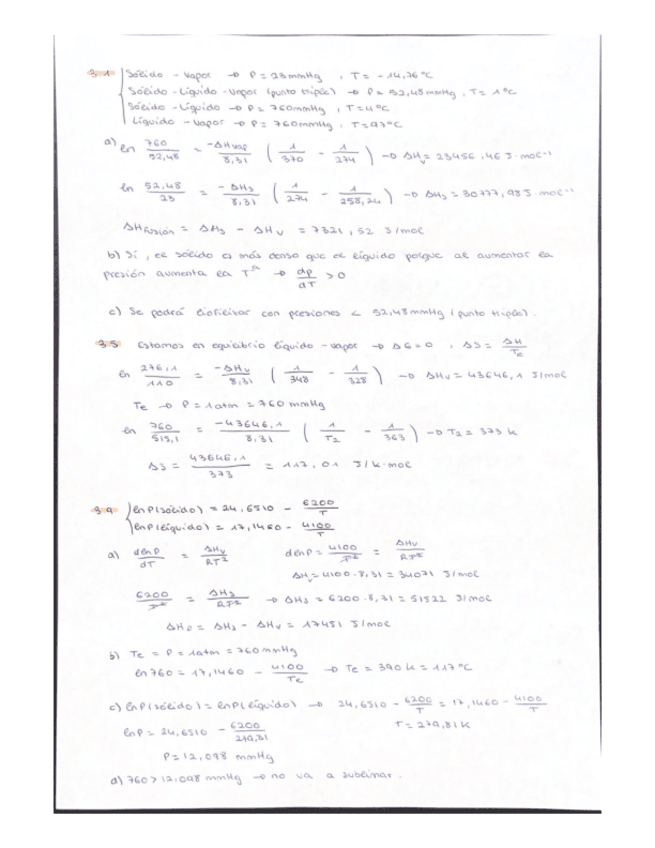 3.1 Sólido - Vapor → P = 23 mmHg , T = -14,76 ºC
Sólido - Líquido - Vapor (punto triple) → P = 52,48 mmHg , T = 1 ºC
Sólido - Líquido → P = 760 mmHg , T = 4 ºC
Líquido - Vapor → P = 760 mmHg , T = 97 ºC
a) ln 760/52,48 = -ΔHvap/8,31 ( 1/370 - 1/274 ) → ΔHv = 23456,46 J·mol⁻¹
ln 52,48/23 = -ΔHs/8,31 ( 1/274 - 1/258,24 ) → ΔHs = 30777,98 J·mol⁻¹
ΔHfusión = ΔHs - ΔHv = 7321,52 J/mol
b) Sí, el sólido es más denso que el líquido porque al aumentar la
presión aumenta la T → dp/dT > 0
c) Se podrá liofilizar con presiones < 52,48 mmHg (punto triple).
3.5 Estamos en equilibrio líquido - vapor → ΔG = 0 , ΔS = ΔH/Te
ln 276,1/110 = -ΔHv/8,31 ( 1/348 - 1/328 ) → ΔHv = 43646,1 J/mol
Te → P = 1 atm = 760 mmHg
ln 760/515,1 = -43646,1/8,31 ( 1/T2 - 1/363 ) → T2 = 373 K
ΔS = 43646,1/373 = 117,01 J/K·mol
3.9 lnP(sólido) = 24,6510 - 6200/T
lnP(líquido) = 17,1460 - 4100/T
a) dlnP/dT = ΔHv/RT² dlnP = 4100/T² = ΔHv/RT²
ΔHv = 4100·8,31 = 34071 J/mol
6200/T² = ΔHs/RT² → ΔHs = 6200·8,31 = 51522 J/mol
ΔHf = ΔHs - ΔHv = 17451 J/mol
b) Te = P = 1 atm = 760 mmHg
ln 760 = 17,1460 - 4100/Te → Te = 390 K = 117 ºC
c) lnP(sólido) = lnP(líquido) → 24,6510 - 6200/T = 17,1460 - 4100/T
lnP = 24,6510 - 6200/279,81 T = 279,81 K
P = 12,098 mmHg
d) 760 > 12,098 mmHg → no va a sublimar.